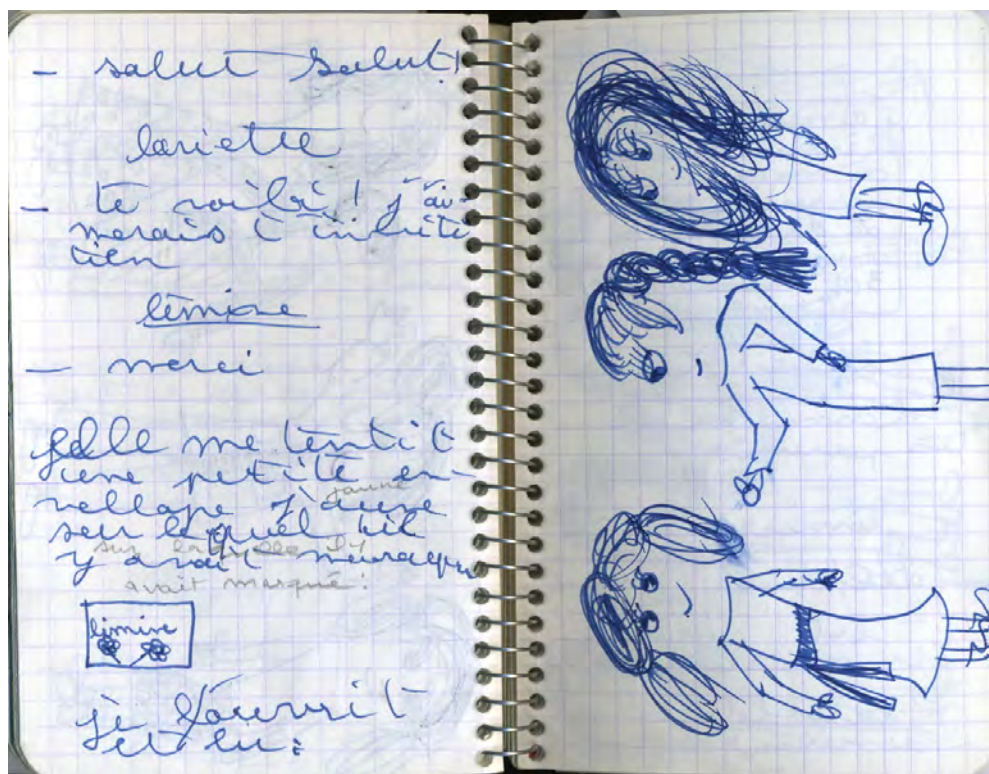 - salut salut!
lariette
- te voilà! j'ai-
merais t'invité
tien
lémine
- merci
elle me tentit
une petite en-
vellope jaune
jaune
sur laquel il
sur laquelle il y
y avait
avait marqué:
limine
je l'ouvrit
et lu: